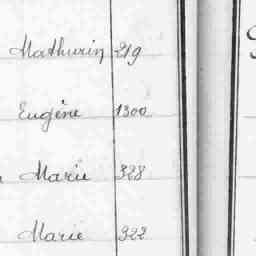 Mathurin 219
Eugène 1300
Marie 328
Marie 322